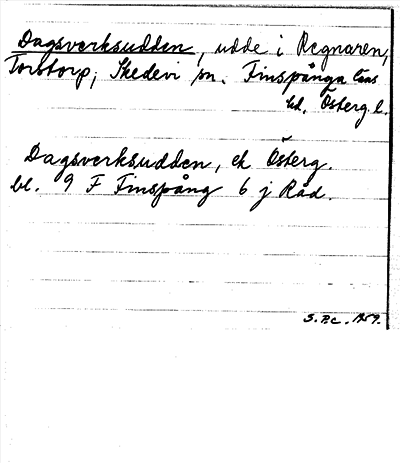 Dagsverksudden, udde i Regnaren,
Torstorp, Skedevi sn. Finspånga läns
hd. Österg. l.
Dagsverksudden, ek Österg.
bl. 9 F Finspång 6 j Råd.
S. P:c. 1959.